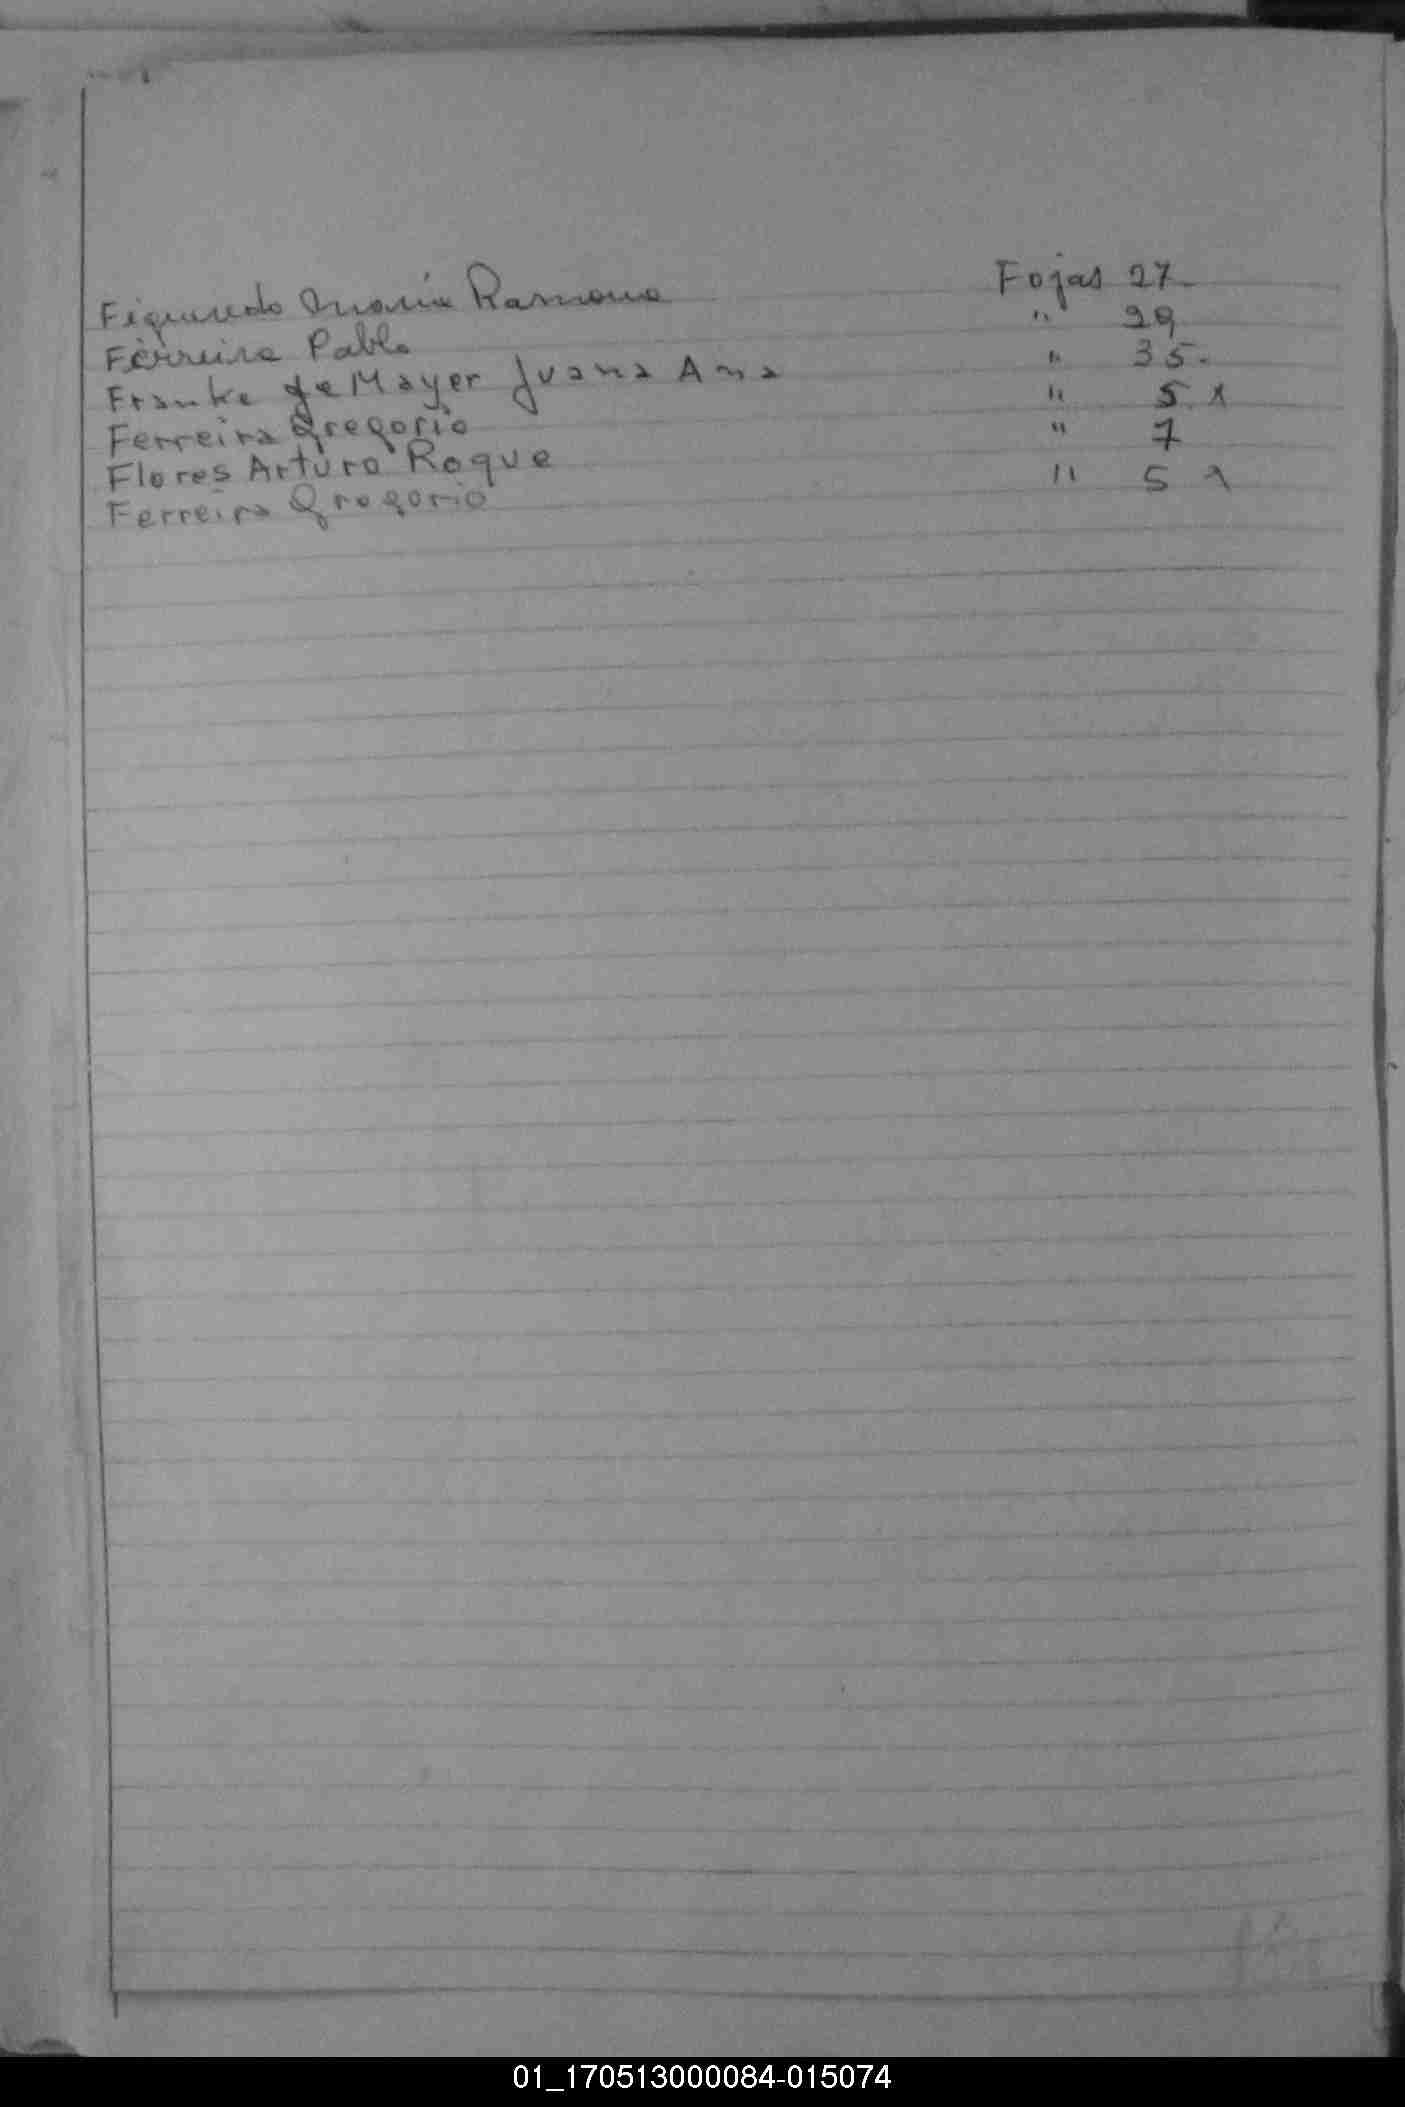 Figueredo Maria Ramona Fojas 27
Ferreira Pablo " 29
Franke de Mayer Juana Ana " 35.
Ferreira Gregorio " 5 x
Flores Arturo Roque " 7
Ferreira Gregorio " 5 x
01_170513000084-015074